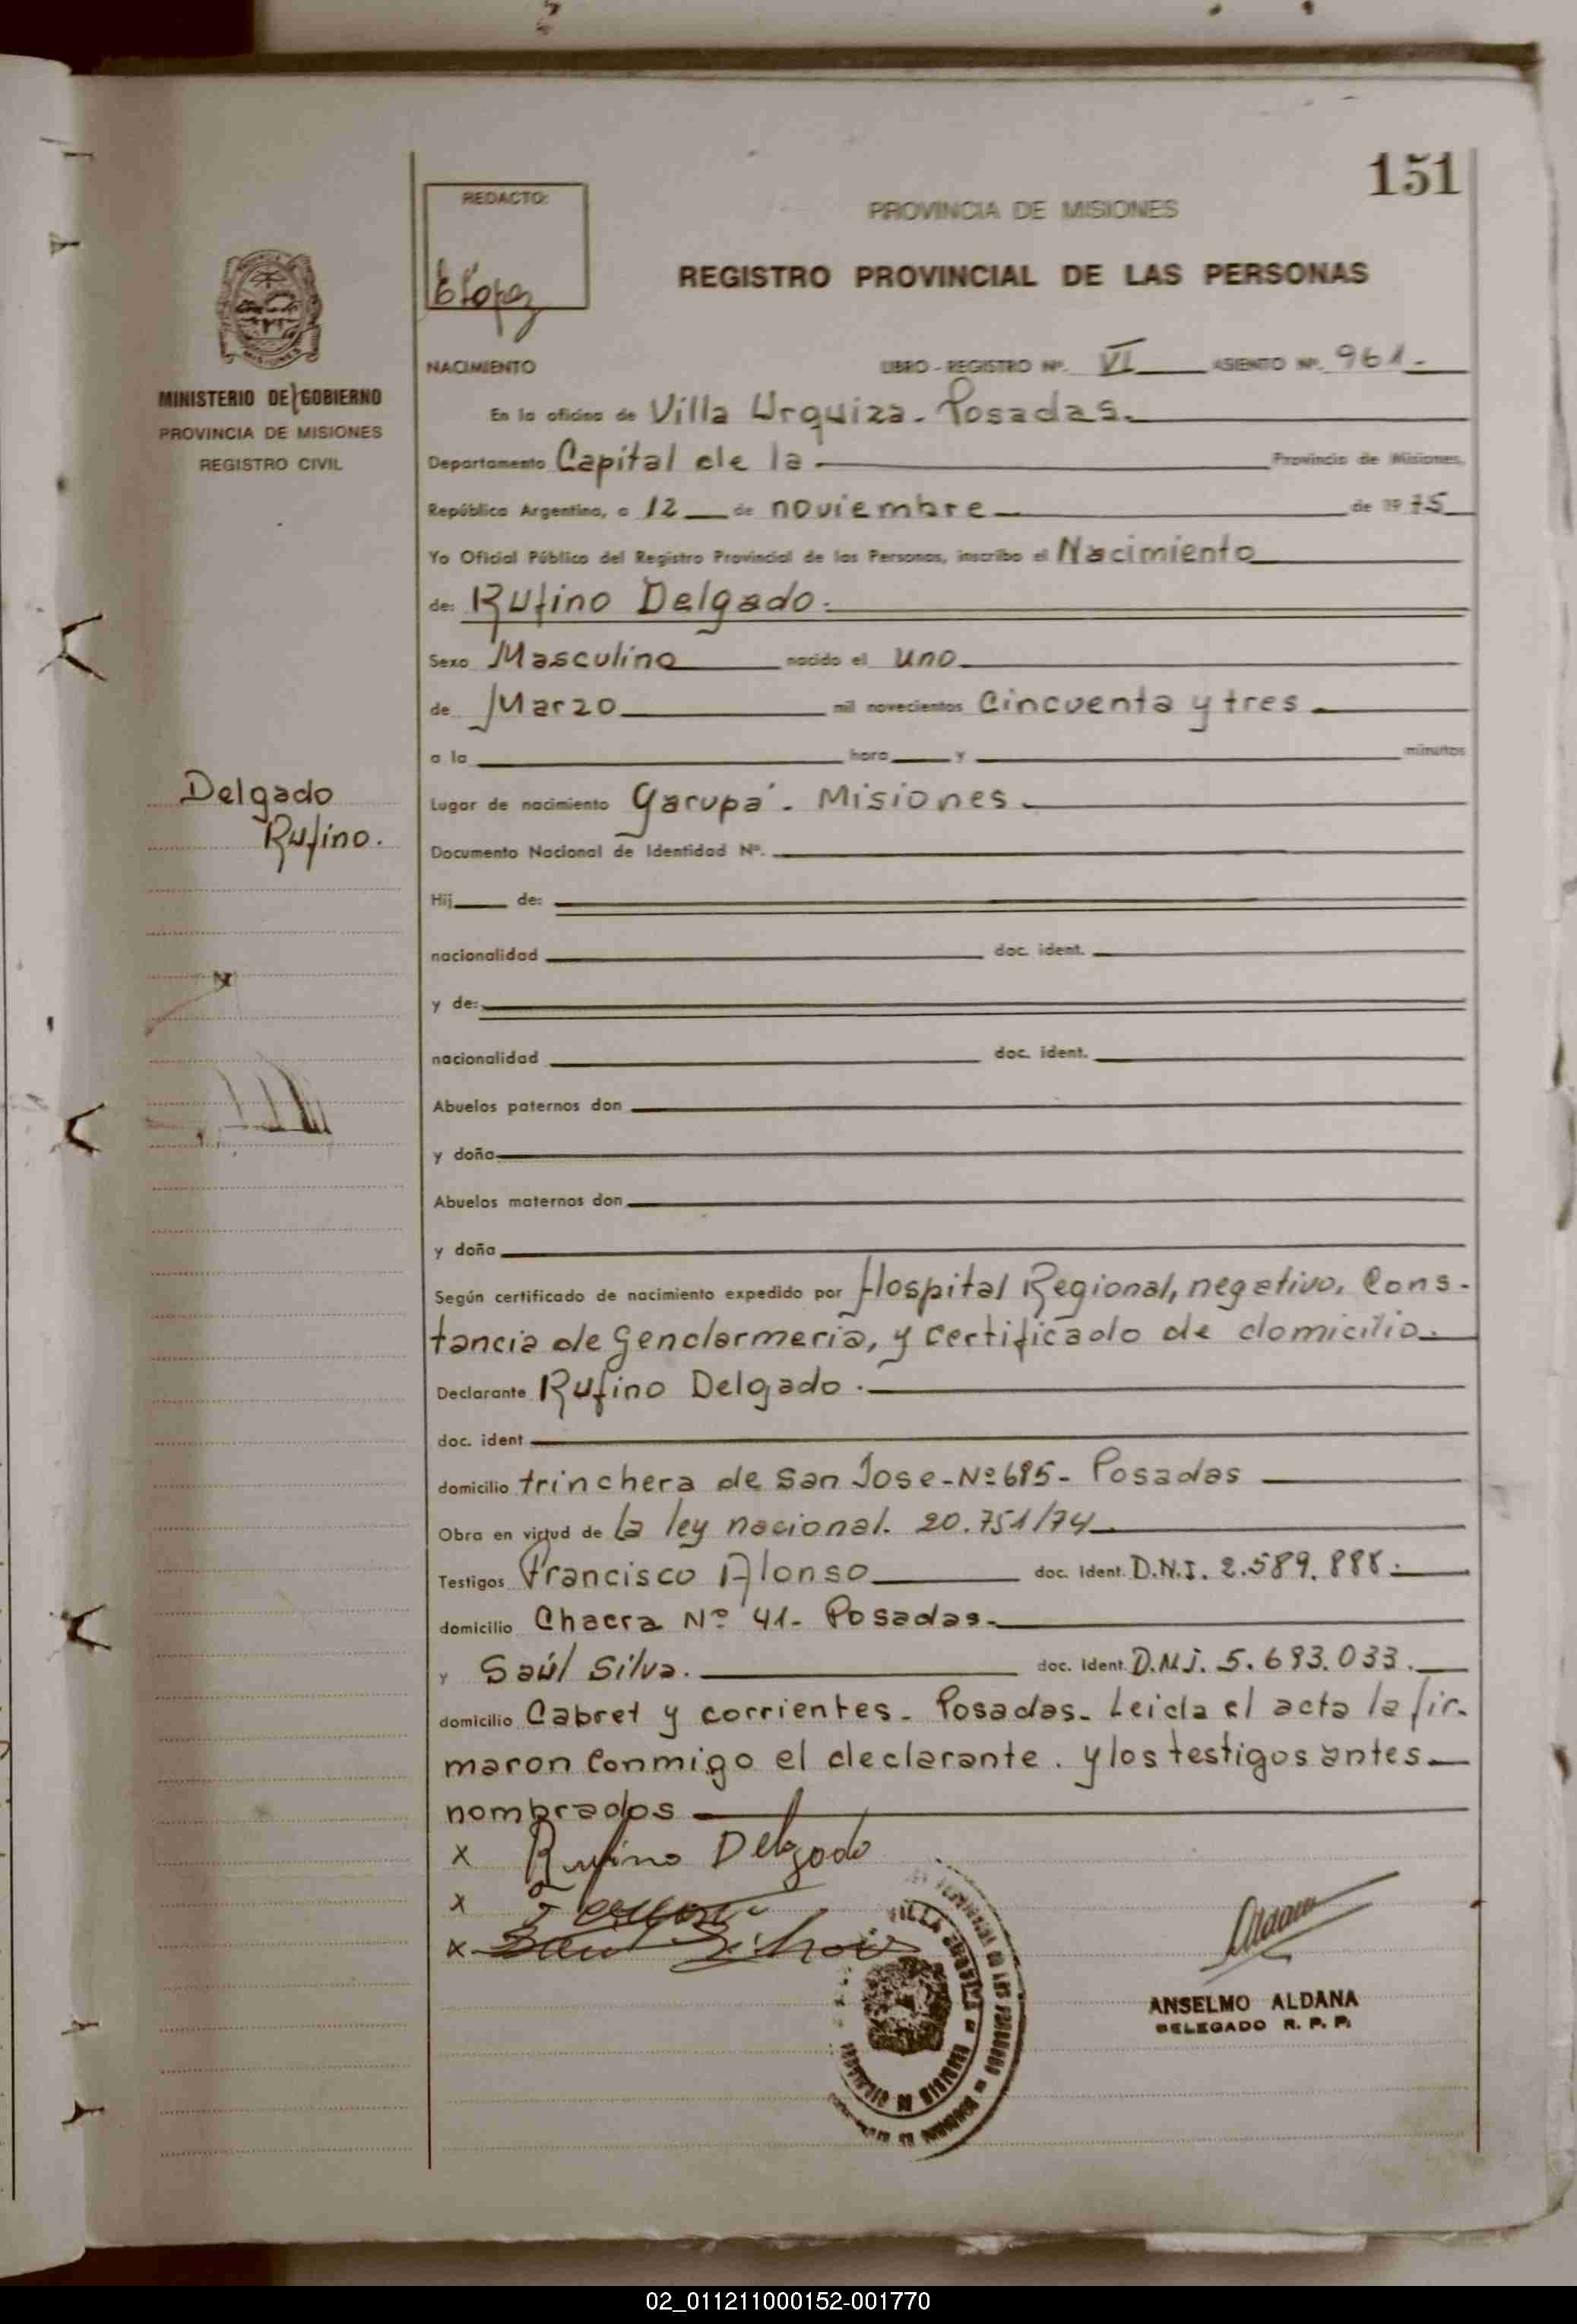 151
REDACTO:
E López
PROVINCIA DE MISIONES
REGISTRO PROVINCIAL DE LAS PERSONAS
MINISTERIO DE GOBIERNO
PROVINCIA DE MISIONES
REGISTRO CIVIL
NACIMIENTO LIBRO - REGISTRO Nº. VI ASIENTO Nº. 961.
En la oficina de Villa Urquiza - Posadas.
Departamento Capital de la Provincia de Misiones,
República Argentina, a 12 de noviembre de 1975
Yo Oficial Público del Registro Provincial de las Personas, inscribo el Nacimiento
de: Rufino Delgado.
Sexo Masculino nacido el uno
de Marzo mil novecientos Cincuenta y tres
a la hora y minutos
Delgado
Rufino.
Lugar de nacimiento Garupá - Misiones
Documento Nacional de Identidad Nº.
Hij de:
nacionalidad doc. ident.
y de:
nacionalidad doc. ident.
Abuelos paternos don
y doña
Abuelos maternos don
y doña
Según certificado de nacimiento expedido por Hospital Regional, negativo, Cons-
tancia de Gendarmeria, y certificado de domicilio.
Declarante Rufino Delgado.
doc. ident
domicilio trinchera de San Jose - Nº 695 - Posadas
Obra en virtud de la ley nacional. 20.751/74
Testigos Francisco Alonso doc. Ident. D.N.I. 2.589.888.
domicilio Chacra Nº 41 - Posadas.
y Saúl Silva. doc. Ident. D.N.I. 5.693.033.
domicilio Cabret y corrientes - Posadas - Leida el acta la fir-
maron Conmigo el declarante. y los testigos antes
nombrados
x Rufino Delgado
x
x Saul Silva
VILLA URQUIZA
PROVINCIA DE MISIONES
ANSELMO ALDANA
DELEGADO R. P. P.
02_011211000152-001770